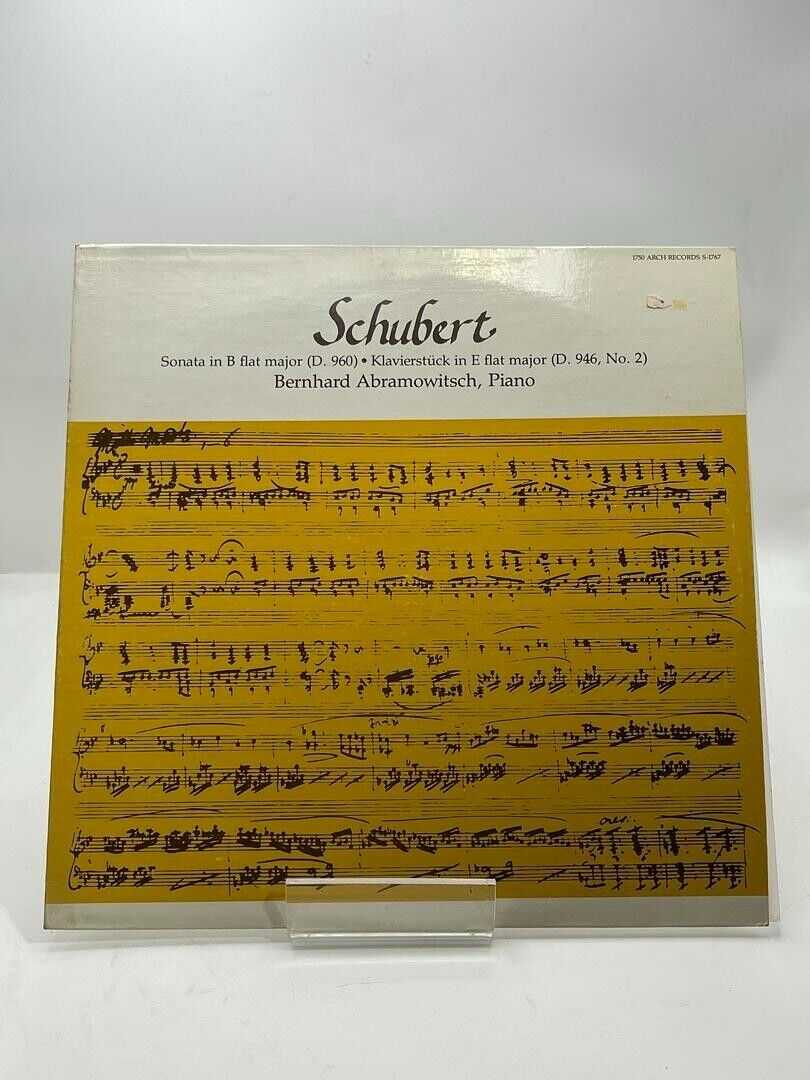 1750 ARCH RECORDS S-1767
Schubert
Sonata in B flat major (D. 960) • Klavierstück in E flat major (D. 946, No. 2)
Bernhard Abramowitsch, Piano
cres..